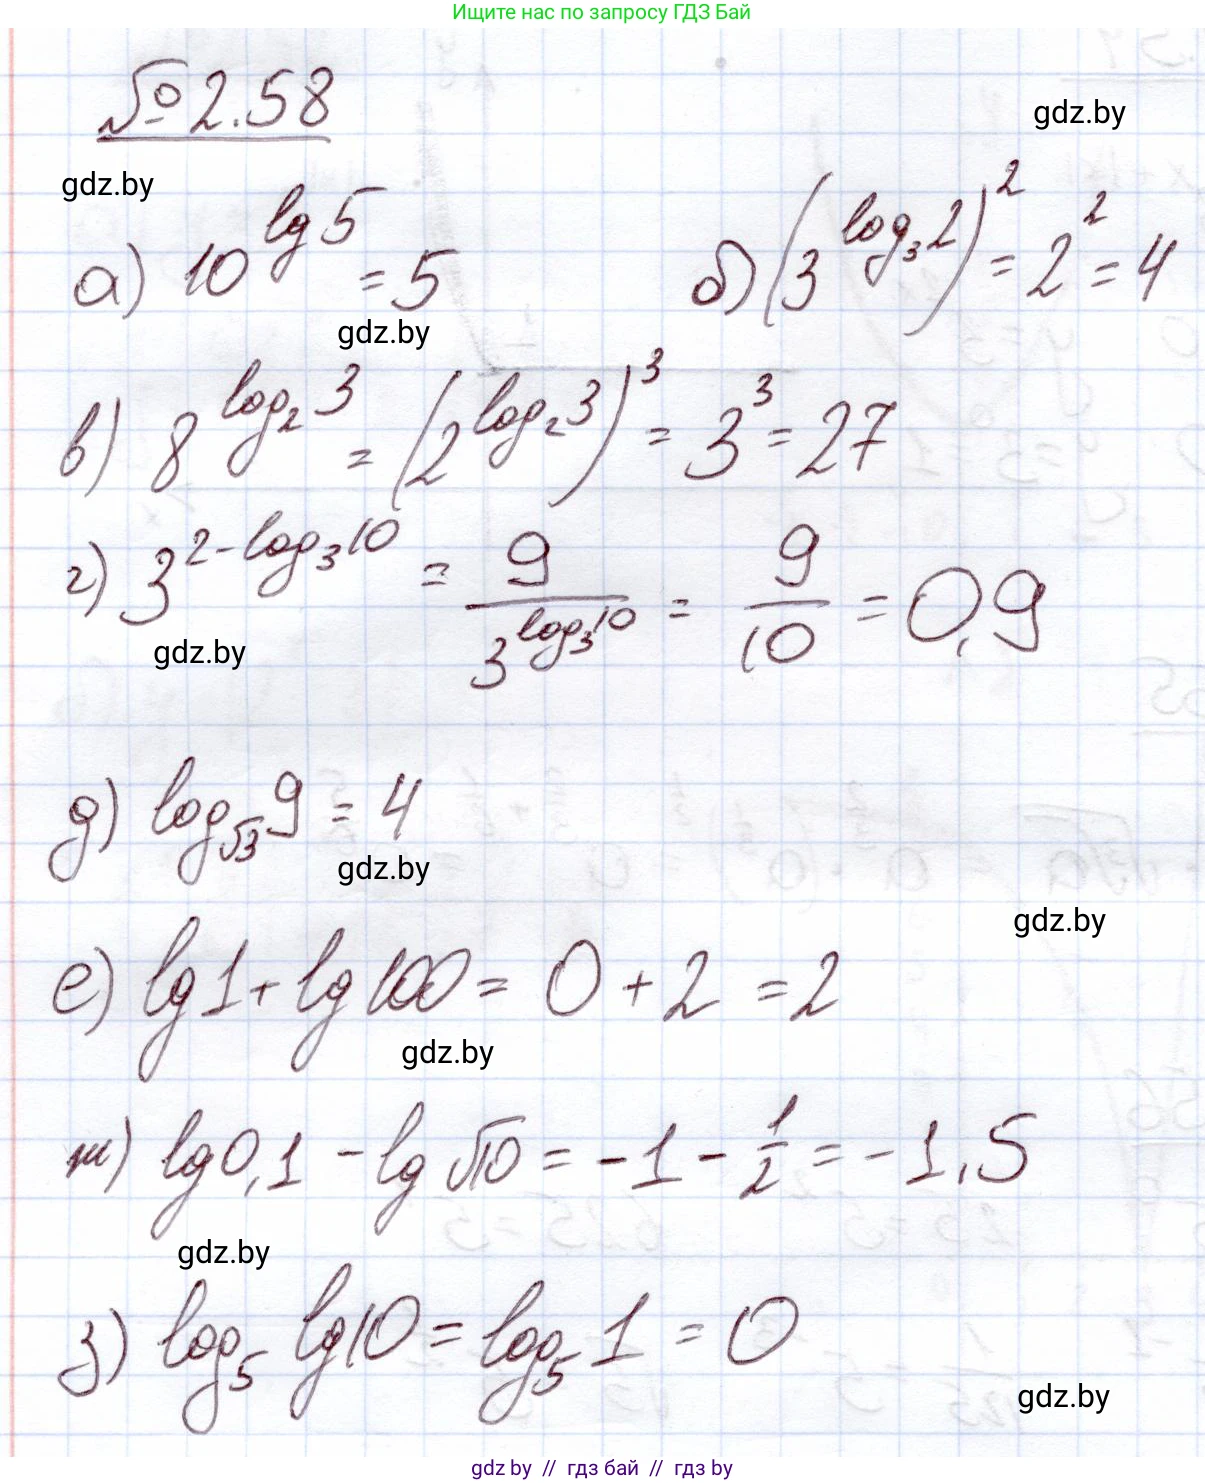 Ищите нас по запросу ГДЗ Бай
№ 2.58
gdz.by
gdz.by
а) 10^{lg 5} = 5
б) (3^{log_3 2})^2 = 2^2 = 4
gdz.by
в) 8^{log_2 3} = (2^{log_2 3})^3 = 3^3 = 27
г) 3^{2-log_3 10} = 9/3^{log_3 10} = 9/10 = 0,9
gdz.by
д) log_{√3} 9 = 4
gdz.by
gdz.by
е) lg 1 + lg 100 = 0 + 2 = 2
gdz.by
ж) lg 0,1 - lg √10 = -1 - 1/2 = -1,5
gdz.by
з) log_5 lg 10 = log_5 1 = 0
gdz.by
gdz by // гдз бай // гдз by